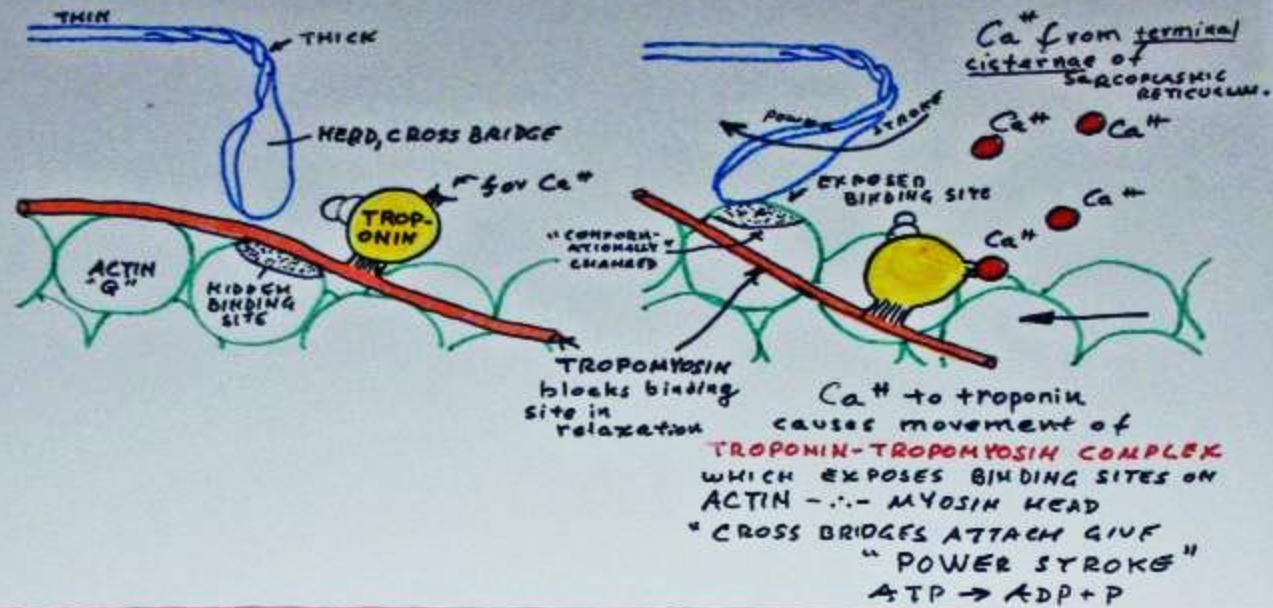 THIN
THICK
HEAD, CROSS BRIDGE
for Ca++
TROP-
ONIN
ACTIN
"G"
HIDDEN
BINDING
SITE
TROPOMYOSIN
blocks binding
site in
relaxation
Ca++ from terminal
cisternae of
SARCOPLASMIC
RETICULUM.
POWER STROKE
Ca++
Ca++
Ca++
Ca++
EXPOSED
BINDING SITE
"CONFORM-
ATIONALLY"
CHANGED
Ca++ to troponin
causes movement of
TROPONIN-TROPOMYOSIN COMPLEX
WHICH EXPOSES BINDING SITES ON
ACTIN -∴- MYOSIN HEAD
"CROSS BRIDGES ATTACH GIVE
"POWER STROKE"
ATP → ADP + P